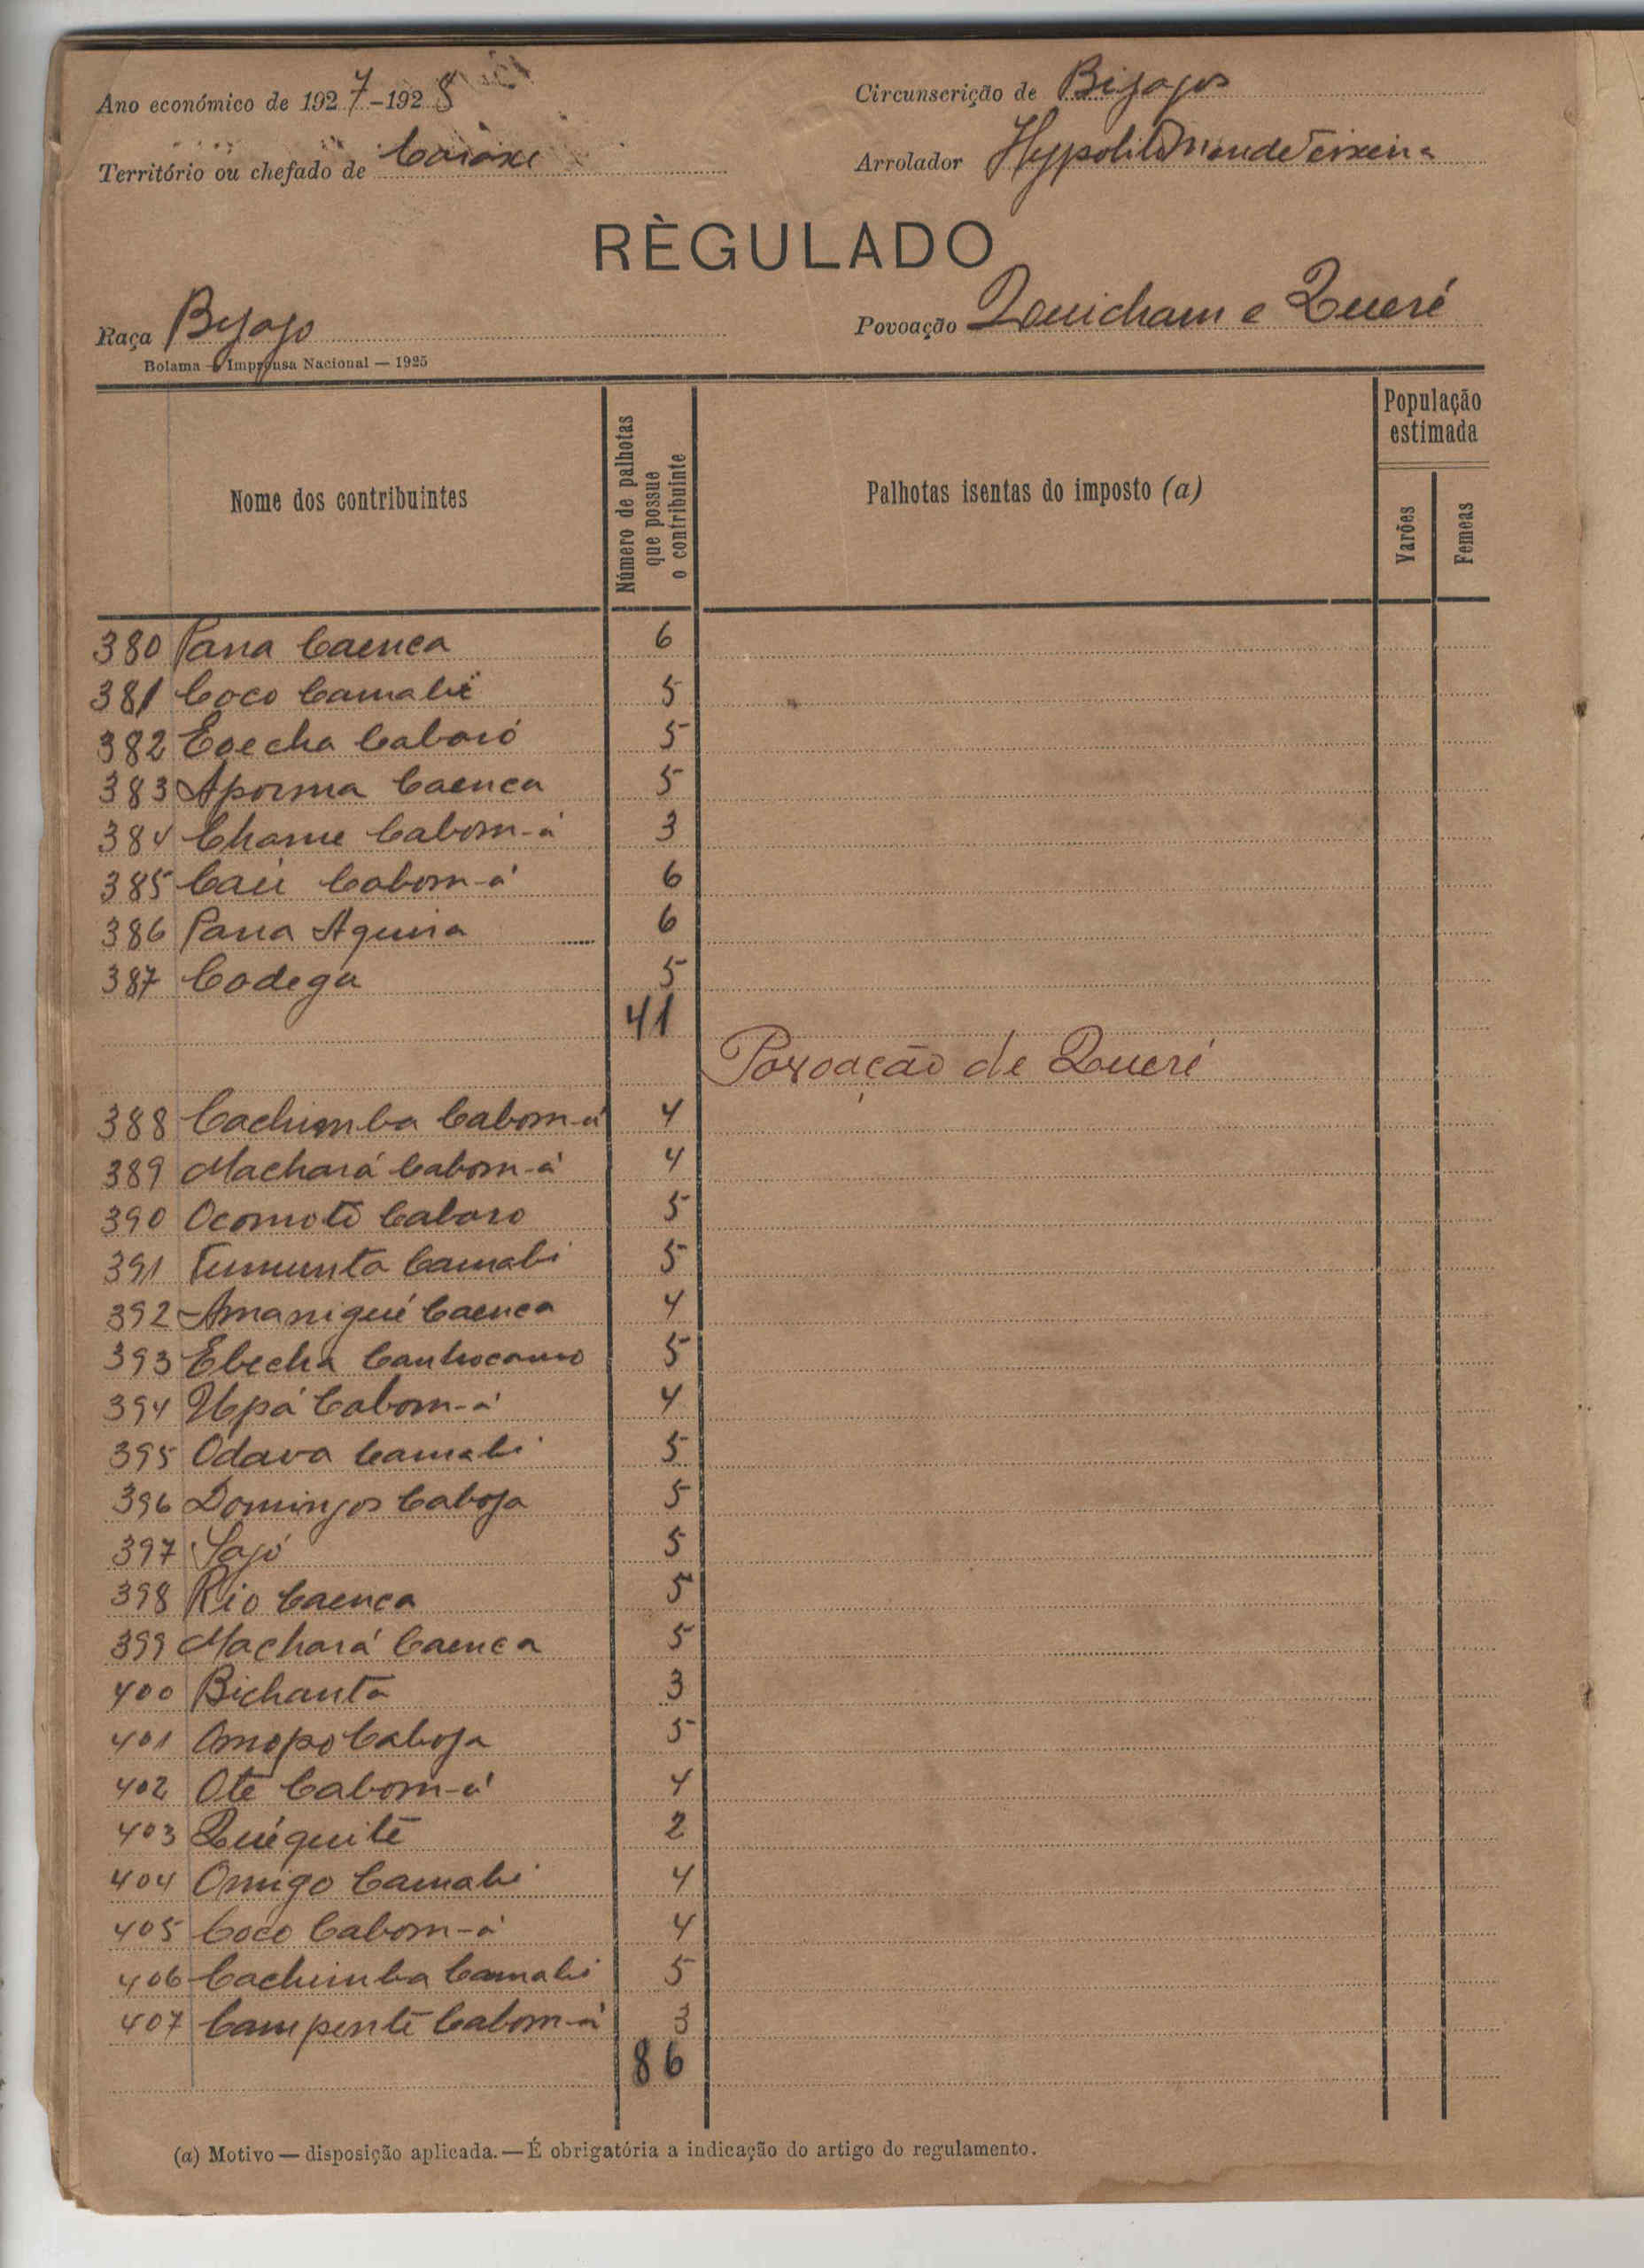 Ano económico de 1927-1928
Circunscrição de Bijagos
Território ou chefado de
Arrolador Hypolito
RÈGULADO
Raça Byjago
Povoação Quicham e Queré
Bolama — Imprensa Nacional — 1925
Nome dos contribuintes
Número de palhotas que possue o contribuinte
Palhotas isentas do imposto (a)
População estimada
Varões
Femeas
380 Pana Caenca 6
381 Coco Camabi 5
382 Eoecha Caboró 5
383 Aporma Caenca 5
384 Chame Cabom-á 3
385 Caú Cabom-á 6
386 Pana Aguina 6
387 Codega 5
41
Povoação de Queré
388 Cachimba Cabom-á 4
389 Machará Cabom-á 4
390 Ocomotè Caboro 5
391 Camabi 5
392 Amanigué Caenca 4
393 Ebecha 5
394 Upá Cabom-á 4
395 Odava Camabi 5
396 Domingos Caboja 5
397 5
398 Rio Caenca 5
399 Machará Caenca 5
400 Bichanta 3
401 Omopo Caboja 5
402 Ote Cabom-á 4
403 Quéquite 2
404 Omigo Camabi 4
405 Coco Cabom-á 4
406 Cachimba Camabi 5
407 Campentè Cabom-á 3
86
(a) Motivo — disposição aplicada. — É obrigatória a indicação do artigo do regulamento.